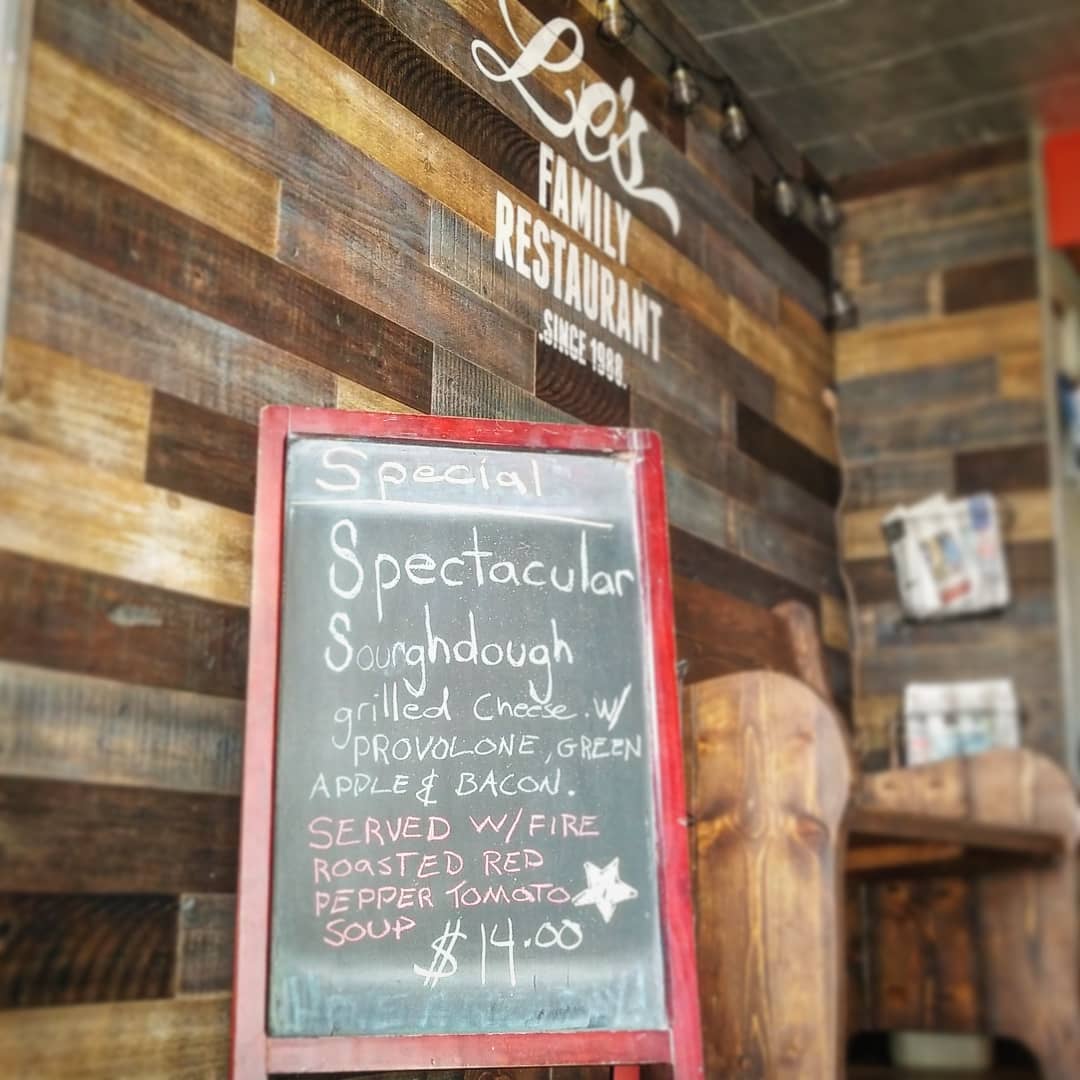 Le's
FAMILY
RESTAURANT
.SINCE 1988.
Special
Spectacular
Sourghdough
grilled Cheese. W/
PROVOLONE, GREEN
APPLE & BACON.
SERVED W/FIRE
ROASTED RED
PEPPER TOMATO
SOUP
$14.00